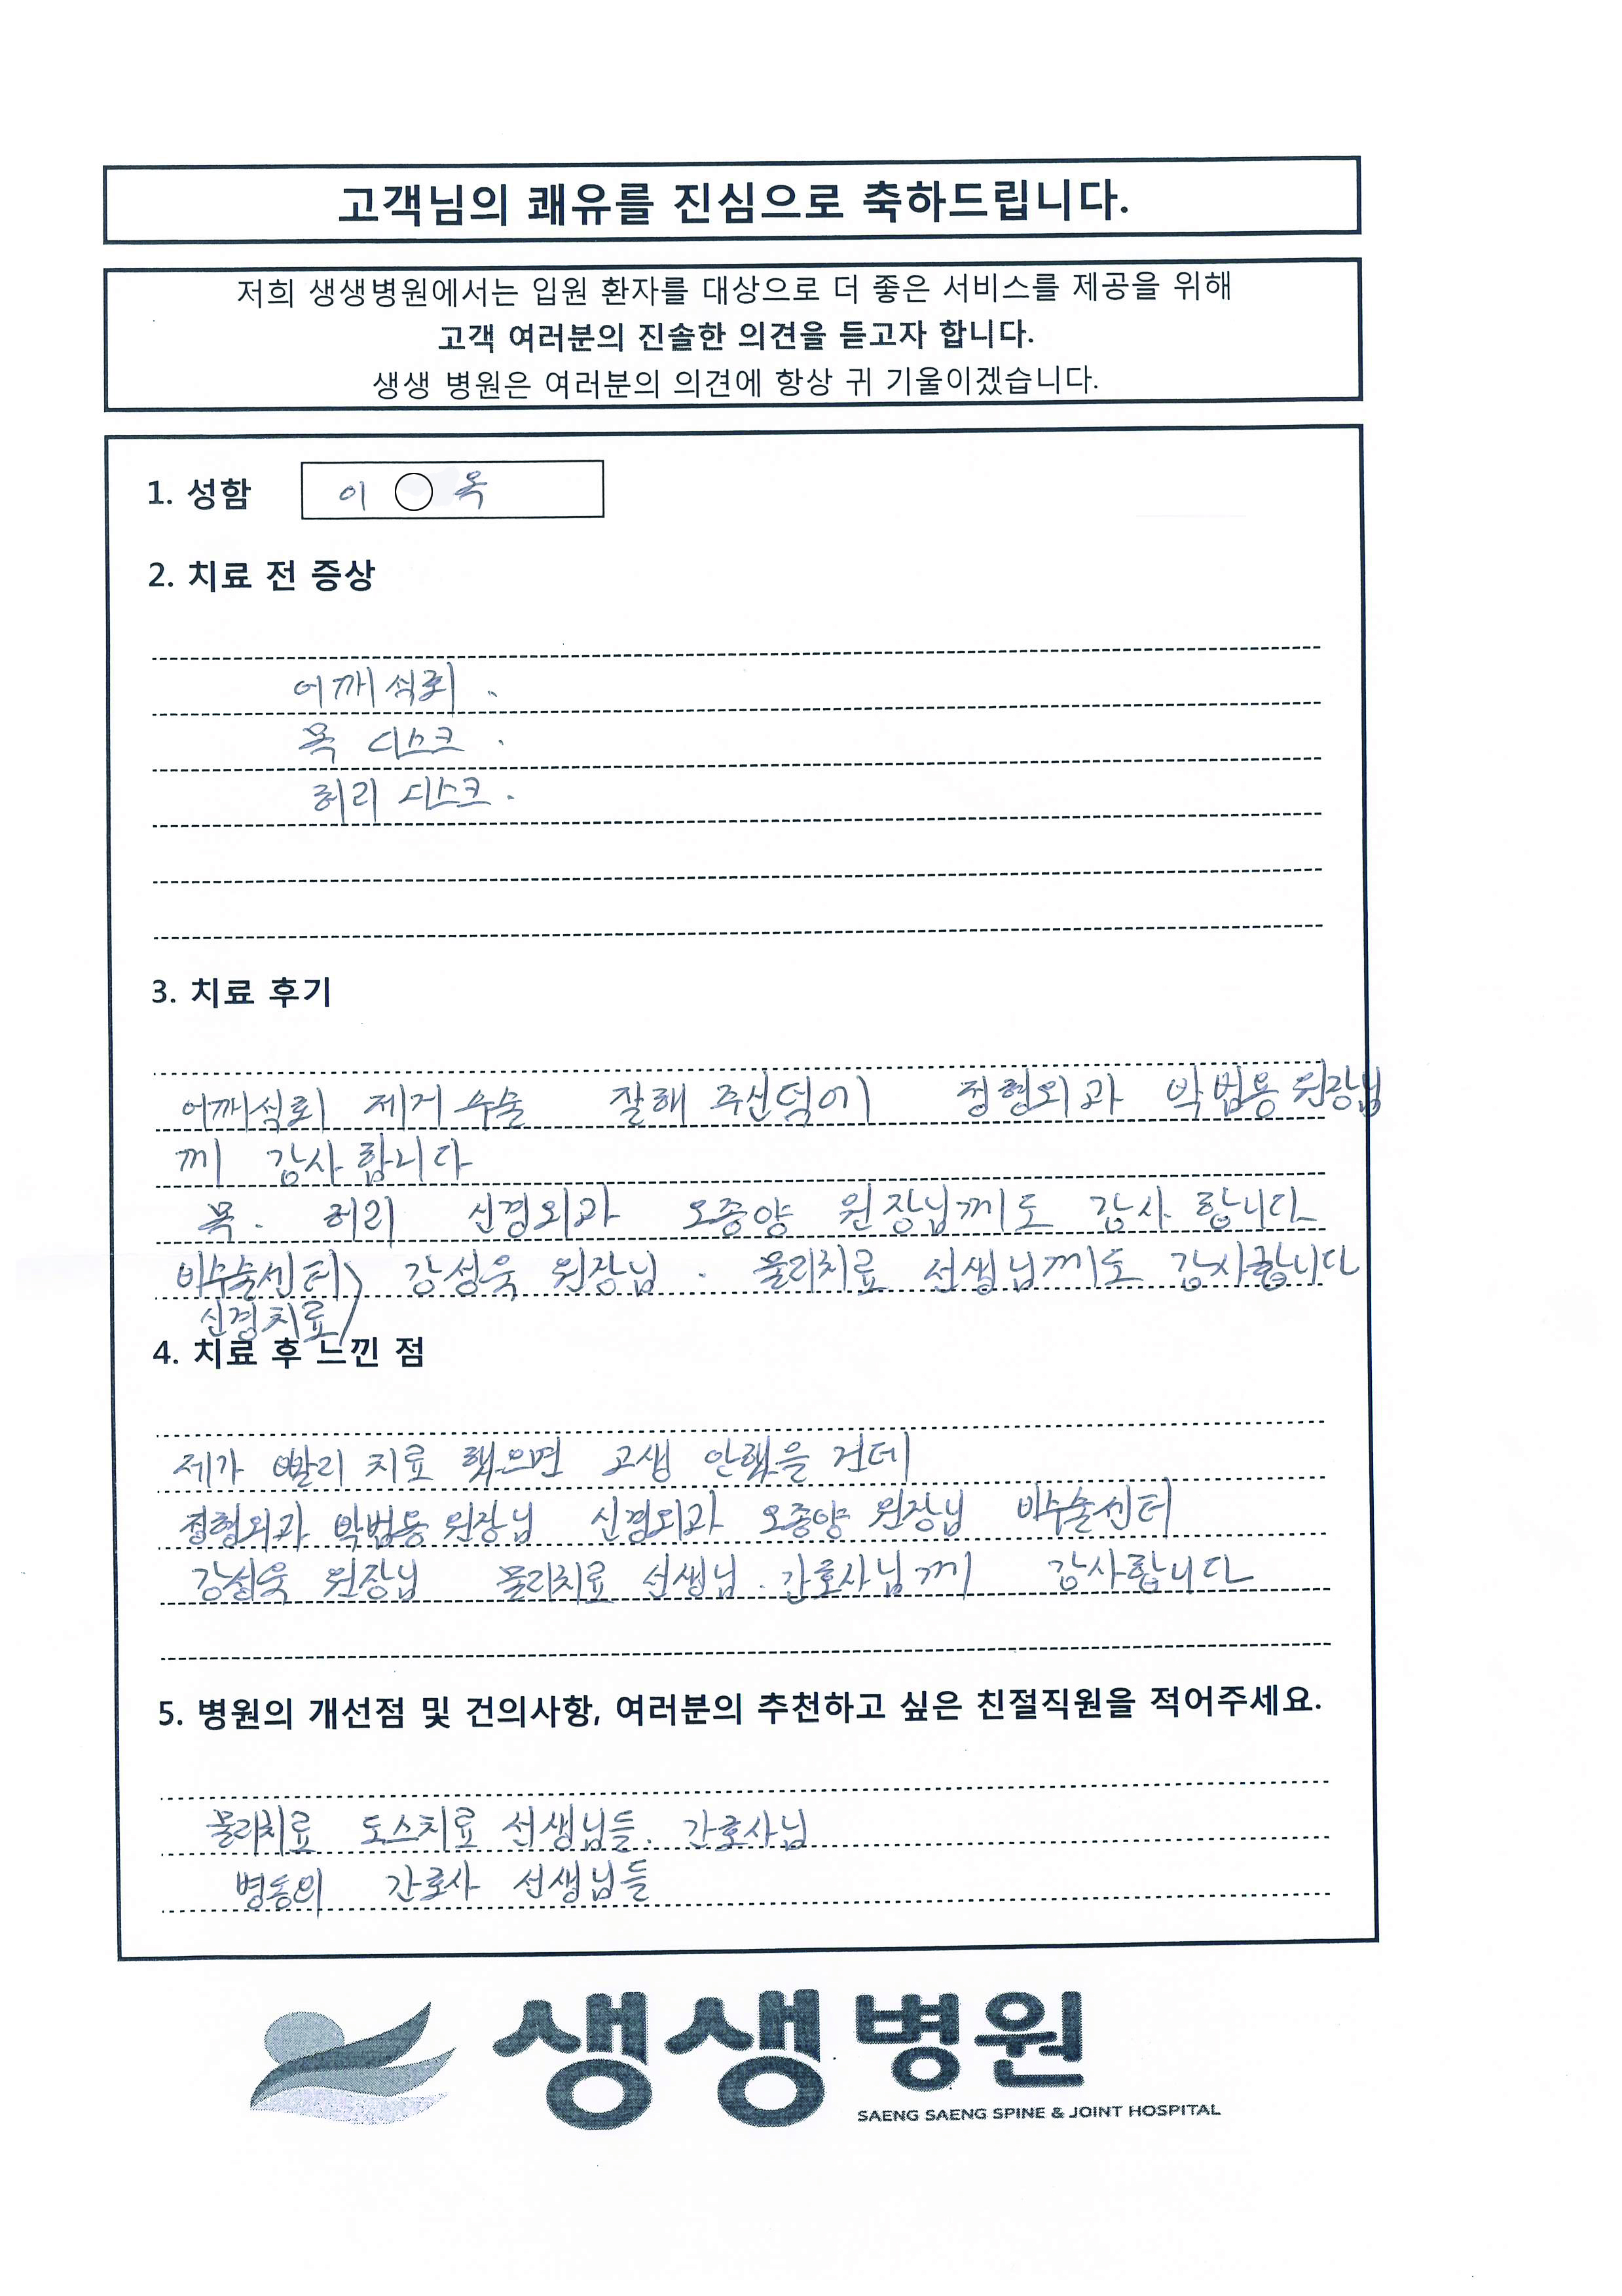 고객님의 쾌유를 진심으로 축하드립니다.
저희 생생병원에서는 입원 환자를 대상으로 더 좋은 서비스를 제공을 위해
고객 여러분의 진솔한 의견을 듣고자 합니다.
생생 병원은 여러분의 의견에 항상 귀 기울이겠습니다.
1. 성함 이 ○ 옥
2. 치료 전 증상
어깨석회.
목 디스크.
허리 디스크.
3. 치료 후기
어깨석회 제거 수술 잘해 주신덕에 정형외과 박범용 원장님
께 감사합니다
목. 허리 신경외과 오종양 원장님께도 감사 합니다
비수술센터) 강성욱 원장님. 물리치료 선생님께도 감사합니다
신경치료)
4. 치료 후 느낀 점
제가 빨리 치료 했으면 고생 안했을 건데
정형외과 박범용 원장님 신경외과 오종양 원장님 비수술센터
강성욱 원장님 물리치료 선생님. 간호사님께 감사합니다
5. 병원의 개선점 및 건의사항, 여러분의 추천하고 싶은 친절직원을 적어주세요.
물리치료 도스치료 선생님들. 간호사님
병동의 간호사 선생님들
생생병원
SAENG SAENG SPINE & JOINT HOSPITAL